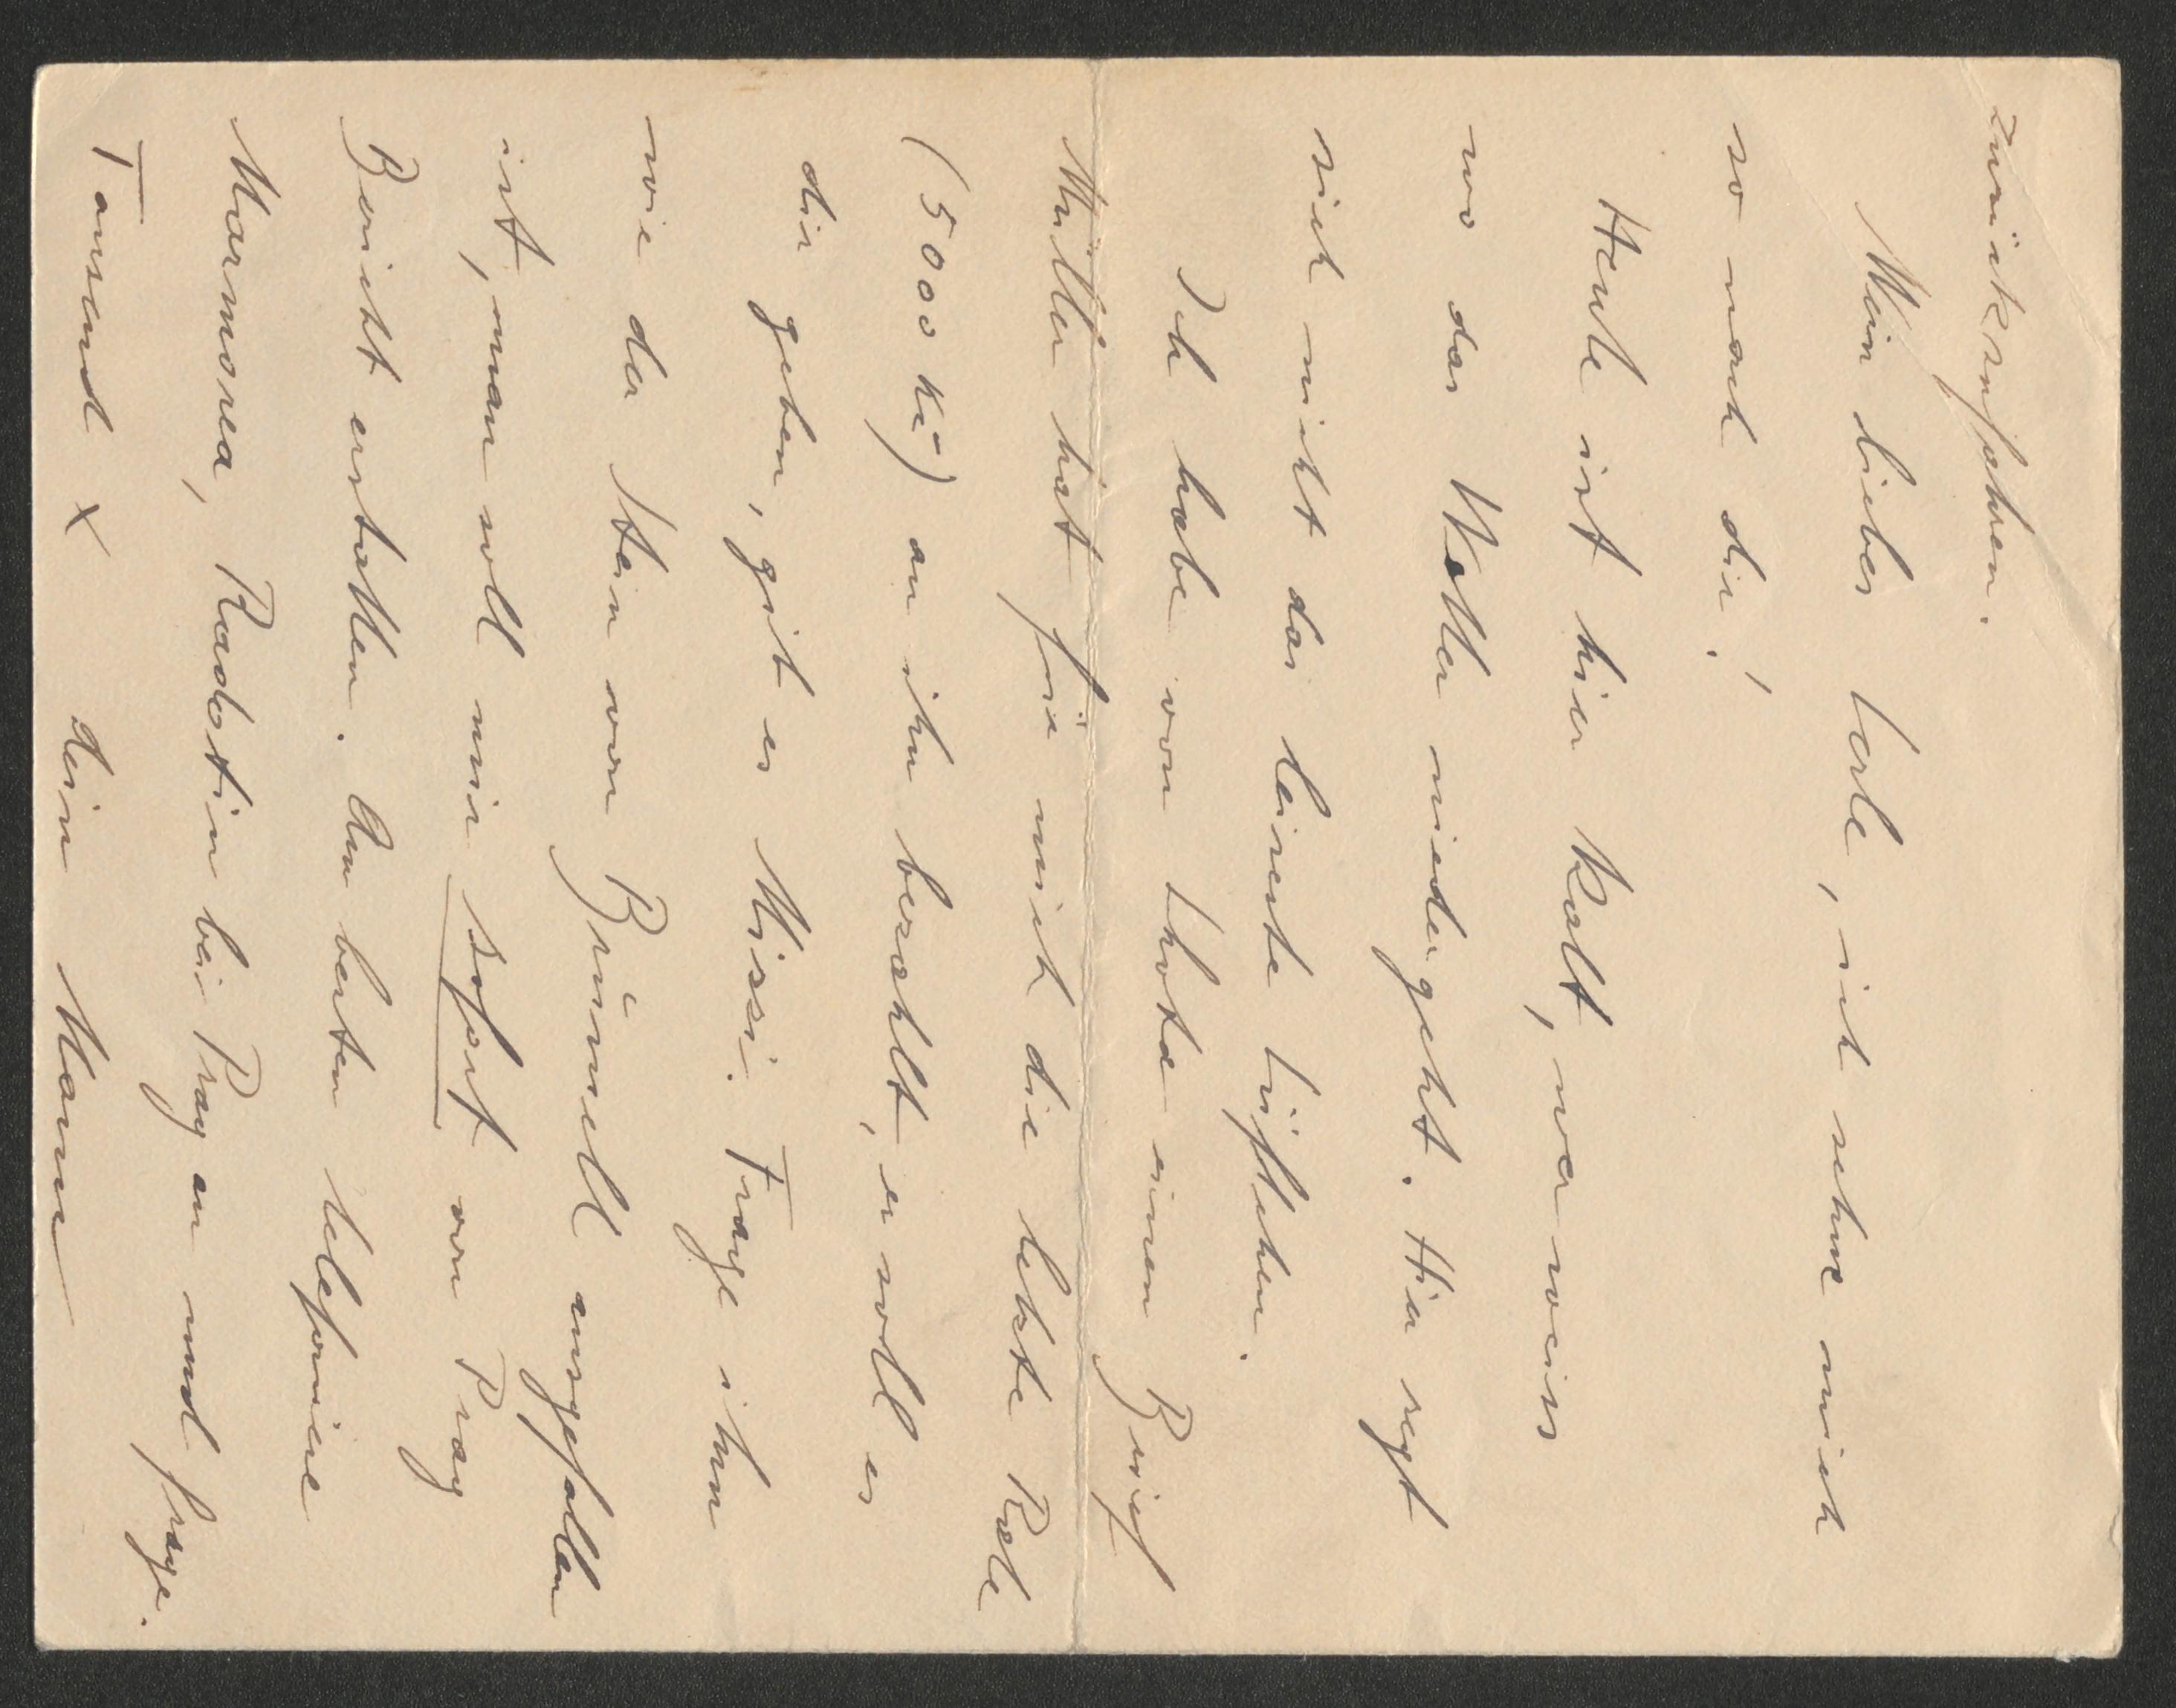 zurückzufahren.
Mein liebes Lerle, ich sehne mich
so nach dir!
Heute ist hier kalt, wer weiss
wo das Wetter niedergeht. Hier regt
sich nicht das leiseste Lüftchen.
Ich habe von Lhota einen Brief
Müller hat für mich die letzte Rate
(5000 Kč) an ihn bezahlt, er soll es
dir geben, gib es Missi. Frage ihn
wie der Stein von Brünell ausgefallen
ist, man soll mir sofort von Prag
Bericht erstatten. Am besten telefoniere
Marmorea, Radotin bei Prag an und frage.
Tausend x dein Mann